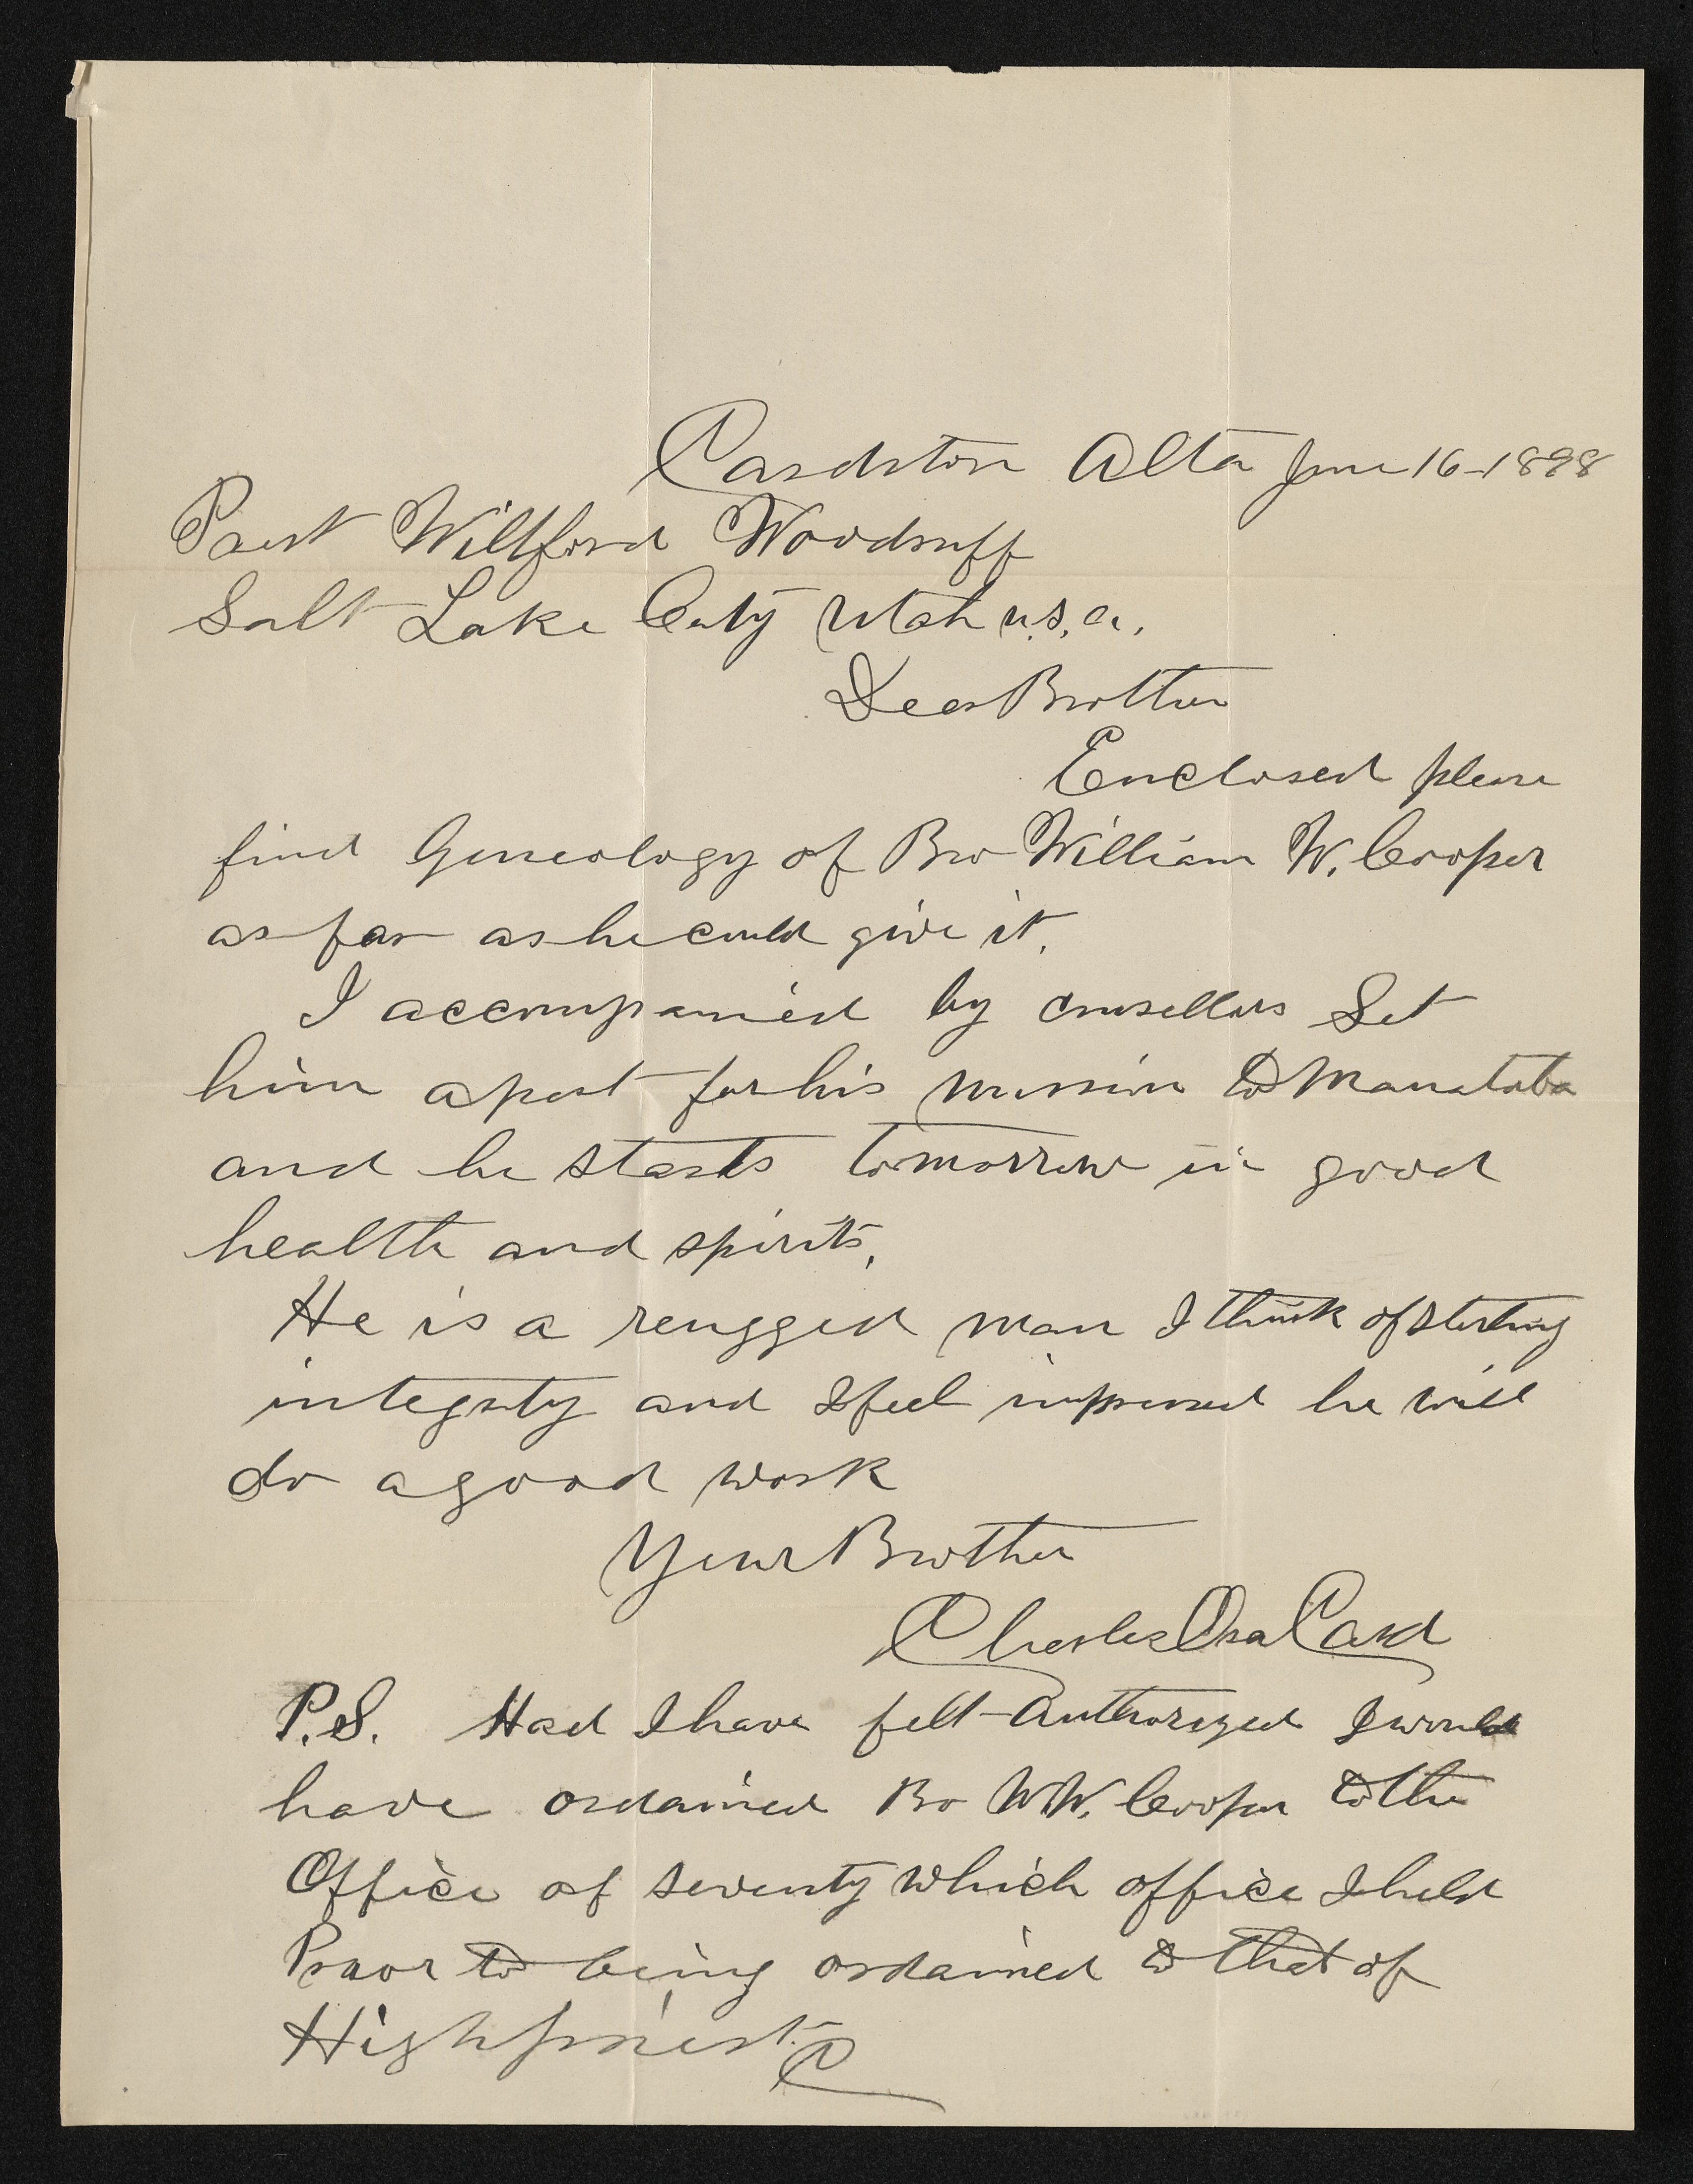 Cardston Alta June 16-1898
Prest Willford Woodruff
Salt Lake City Utah U.S.A.
Dear Brother
Enclosed please
find Geneology of Bro William W. Cooper
as far as he could give it.
I accompanied by counsellors Set
him apart for his mission to Manatoba
and he starts tomorrow in good
health and spirits.
He is a rengged man I think of sterling
integrity and I feel impressed he will
do a good work
Your Brother
Charles Ora Card
P.S. Had I have felt Authorized I would
have ordained Bro W.W. Cooper to the
Office of seventy which office I held
Prior to being ordained to that of
Highpriest. C